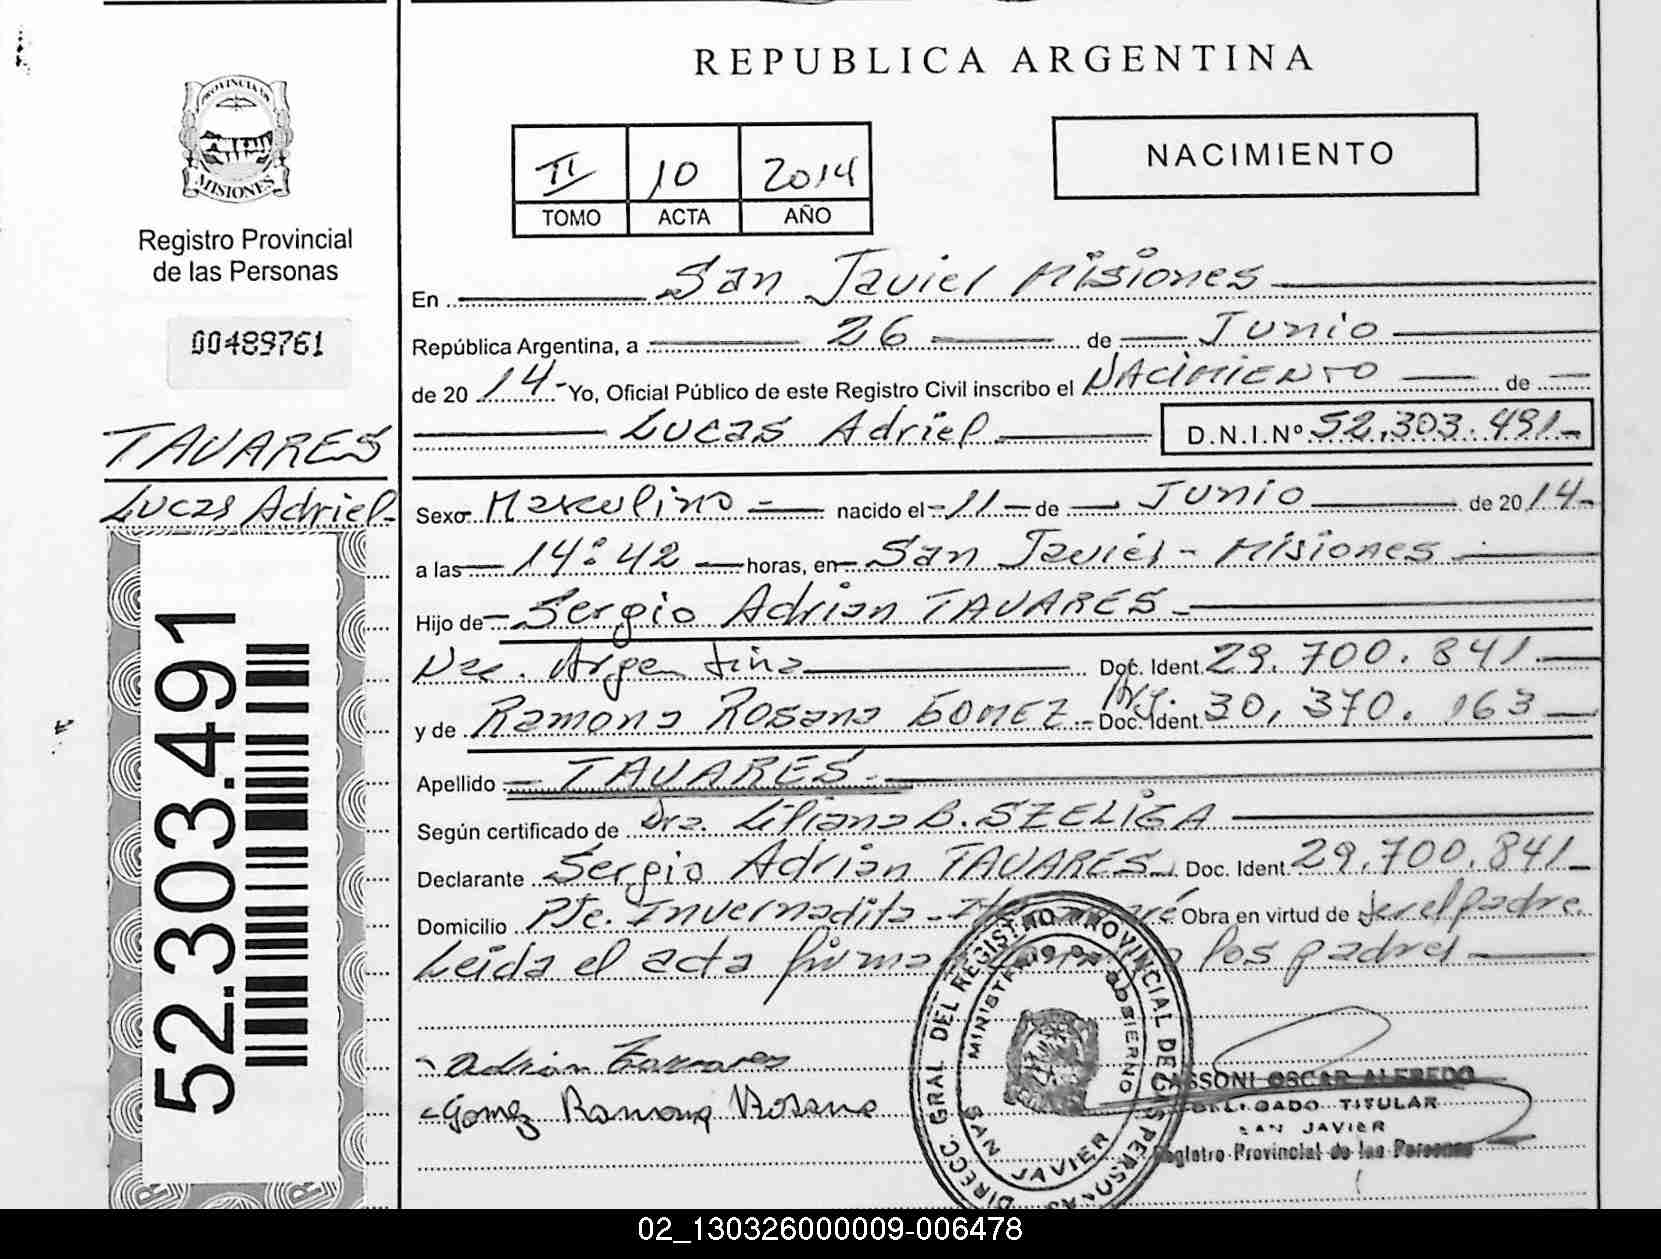 REPUBLICA ARGENTINA
PROVINCIA DE
MISIONES
Registro Provincial
de las Personas
00489761
TAVARES
Lucas Adriel-
52.303.491
II 10 2014
TOMO ACTA AÑO
NACIMIENTO
En San Javier Misiones
República Argentina, a 26 de Junio
de 20 14- Yo, Oficial Público de este Registro Civil inscribo el NACIMIENTO de
Lucas Adriel D.N.I.Nº 52.303.491-
Sexo Masculino nacido el 11 de Junio de 20 14-
a las 14:42 horas, en San Javier - Misiones
Hijo de Sergio Adrian TAVARES
Nac. Argentina Doc. Ident. 29.700.841.
y de Ramona Rosana GOMEZ - Doc. Ident. 30.370.163
Apellido TAVARES
Según certificado de Dra. Liliana B. SZELIGA
Declarante Sergio Adrian TAVARES Doc. Ident. 29.700.841-
Domicilio Pje. Invernadita - Obra en virtud de ser el padre.
Leida el acta los padres
Adrian Tavares
Gomez Ramona Rosana
DIRECC. GRAL DEL REGISTRO PROVINCIAL DE LAS PERSONAS
MINISTERIO DE GOBIERNO
SAN JAVIER
CASSONI OSCAR ALFREDO
DELEGADO TITULAR
SAN JAVIER
Registro Provincial de las Personas
02_130326000009-006478